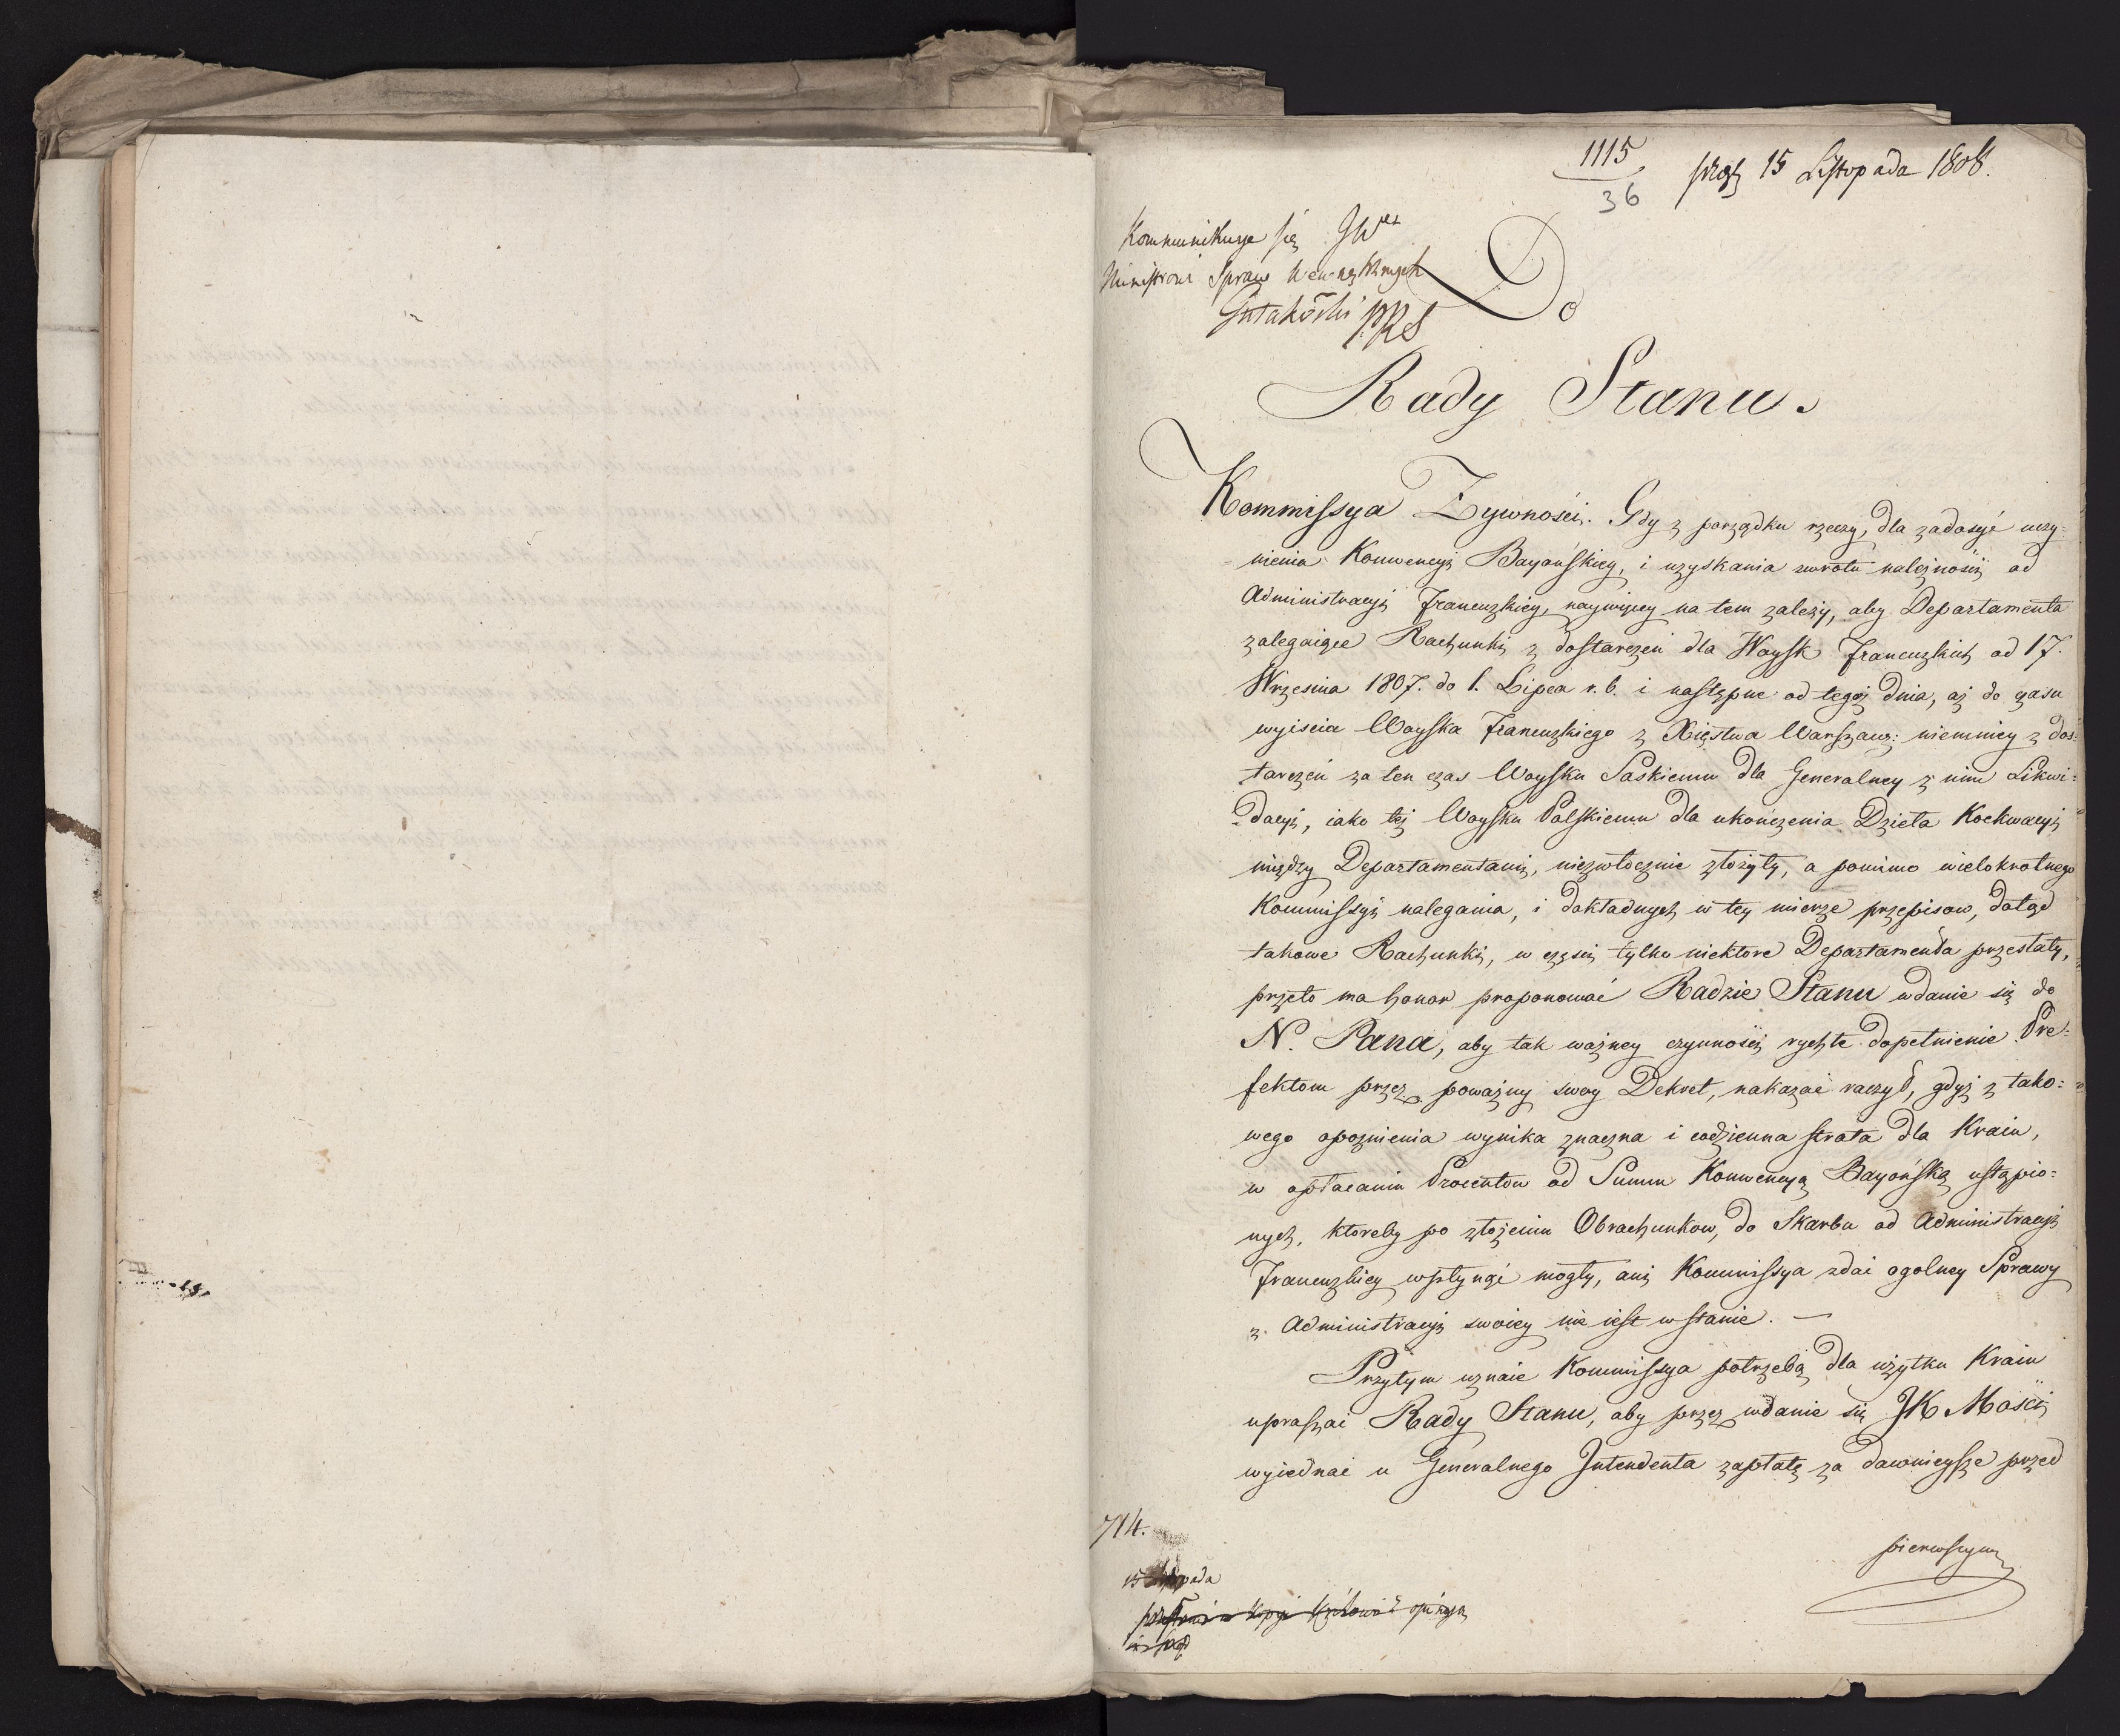 1115
36
15 Listopada 1808.
Kommunikuje się JWu
Ministrowi Spraw Wewnętrznych
Gutakowski PRS
Do
Rady Stanu.
Kommissya Zywnosci. Gdy z porządku rzeczy, dla zadosyć uczy=
=nienia Konwencyi Bayońskiey, i uzyskania zwrotu należnosci od
Administracyi Francuzkiey, naywięcey na tem zależy, aby Departamenta
zalegaiące Rachunki z dostarczeń dla Woysk Francuzkich od 17.
Wrzesnia 1807. do 1. Lipca r. b. i następne od tegoż dnia, aż do czasu
wyiscia Woyska Francuzkiego z Xięstwa Warszaws: niemniey z dos=
tarczeń za ten czas Woysku Saskiemu dla Generalney z nim Likwi=
=dacyi, iako też Woysku Polskiemu dla ukończenia Dzieła Koekwacyi
między Departamentami, niezwłocznie złożyły, a pomimo wielokrotnego
Kommissyi nalegania, i dokładnych w tey mierze przepisow, dotąd
takowe Rachunki, w częsci tylko niektore Departamenta przesłały,
przeto ma honor proponować Radzie Stanu udanie się do
N. Pana, aby tak ważney czynnosci rychłe dopełnienie Pre=
fektom przez poważny swoy Dekret, nakazać raczył, gdyż z tako=
wego opoznienia wynika znaczna i codzienna strata dla Kraiu,
w opłacaniu Procentow od Summ Konwencyą Bayońską ustąpio=
nych, ktoreby po złożeniu Obrachunkow, do Skarbu od Administracyi
Francuzkiey wpłynąć mogły, ani Kommissya zdać ogolney Sprawy
z Administracyi swoiey nie iest w stanie. —
Przytym uznaie Kommissya potrzebą dla użytku Kraiu
upraszać Rady Stanu, aby przez udanie się JK Mości
wyiednać u Generalnego Intendenta zapłatę za dawnieysze przed
pierwszym
714.
15
opinią